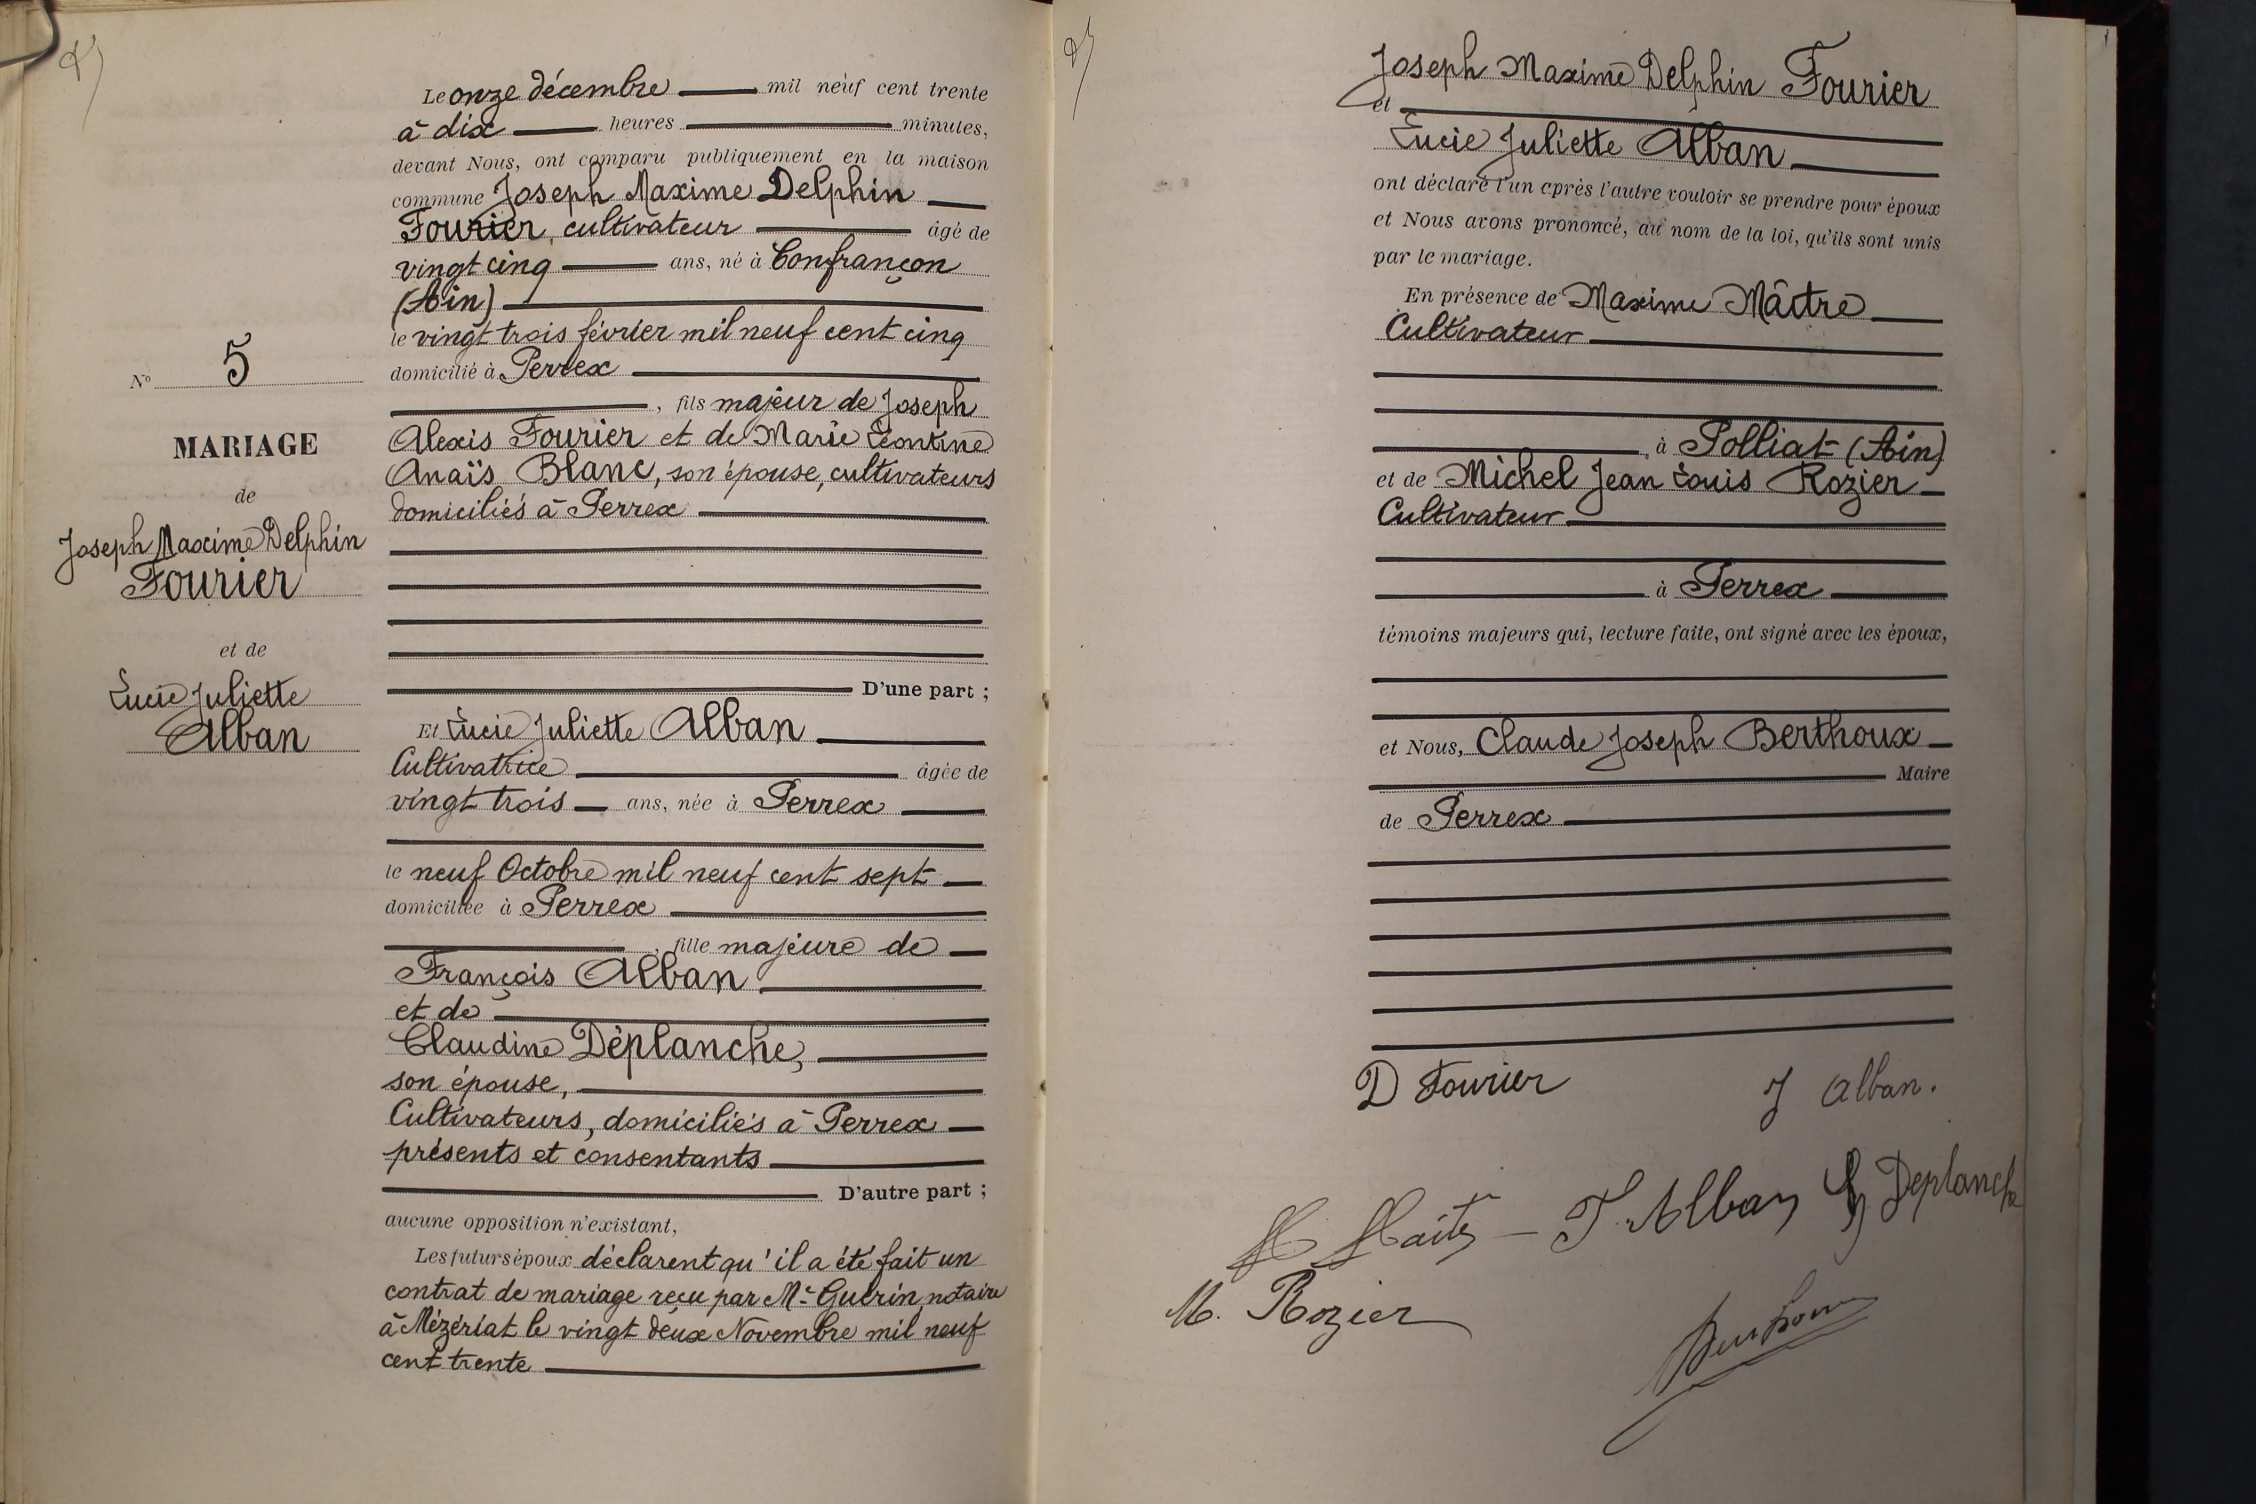 Le onze décembre mil neuf cent trente
à dix heures minutes,
devant Nous, ont comparu publiquement en la maison
commune Joseph Maxime Delphin
Fourier, cultivateur âgé de
vingt cinq ans, né à Confrançon
(Ain)
le vingt trois février mil neuf cent cinq
domicilié à Perrex
, fils majeur de Joseph
Alexis Fourier et de Marie Léontine
Anaïs Blanc, son épouse, cultivateurs
domiciliés à Perrex
D'une part ;
Et Lucie Juliette Alban
Cultivatrice âgée de
vingt trois ans, née à Perrex
le neuf Octobre mil neuf cent sept
domiciliée à Perrex
, fille majeure de
François Alban
et de
Claudine Déplanche,
son épouse,
Cultivateurs, domiciliés à Perrex
présents et consentants
D'autre part ;
aucune opposition n'existant,
Les futurs époux déclarent qu'il a été fait un
contrat de mariage reçu par Me Guérin, notaire
à Mézériat le vingt deux Novembre mil neuf
cent trente
No 5
MARIAGE
de
Joseph Maxime Delphin
Fourier
et de
Lucie Juliette
Alban
Joseph Maxime Delphin Fourier
et
Lucie Juliette Alban
ont déclaré l'un après l'autre vouloir se prendre pour époux
et Nous avons prononcé, au nom de la loi, qu'ils sont unis
par le mariage.
En présence de Maxime Mâitre
Cultivateur
à Polliat (Ain)
et de Michel Jean Louis Rozier
Cultivateur
à Perrex
témoins majeurs qui, lecture faite, ont signé avec les époux,
et Nous, Claude Joseph Berthoux
Maire
de Perrex
D Fourier J Alban.
F. Alban Deplanche
M. Rozier